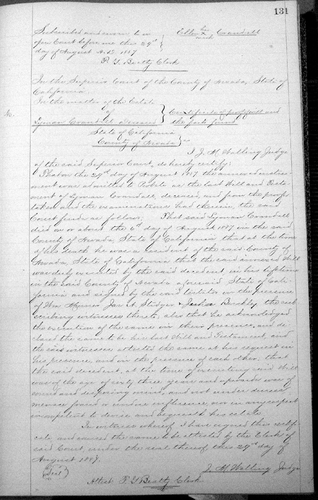 131
Subscribed and sworn to in
open Court before me this 29th
day of August A.D. 1887
Ellen Crandall
P. G. Beatty Clerk
In the Superior Court of the County of Nevada, State of
California.
In the matter of the Estate
of
Lyman Crandall Deceased
Certificate of proof of will and
the facts found
State of California
County of Nevada
I J. M. Walling Judge
of the said Superior Court, do hereby certify:
That on the 29th day of August 1887 the annexed instru-
ment was admitted to Probate as the last Will and Testa-
ment of Lyman Crandall, deceased, and from the proofs
taken and the examination had therein, the said
Court finds as follows: That said Lyman Crandall
died on or about the day of August 1887 in the said
County of Nevada State of California, that at the time
of his death he was a resident of the said County of
Nevada, State of California, that the said annexed Will
was duly executed by the said decedent in his lifetime
in the said County of Nevada aforesaid State of Cali-
fornia and signed by the said testator in the presence
of and Joshua the sub-
scribing witnesses thereto, also that he acknowledged
the execution of the same in their presence, and de-
clared the same to be his last Will and Testament, and
the said witnesses attested the same at his request in
his presence and in the presence of each other, that
the said decedent, at the time of executing said Will
was of the age of sixty three years and upwards, was of
sound and disposing mind, and not under duress,
menace, fraud, or undue influence, nor in any respect
incompetent to devise and bequeath his estate.
In witness whereof I have signed this certifi-
cate, and caused the same to be attested by the Clerk of
said Court under the seal thereof this 29th day of
August 1887.
J. M. Walling Judge
(Seal)
Attest P. G. Beatty Clerk